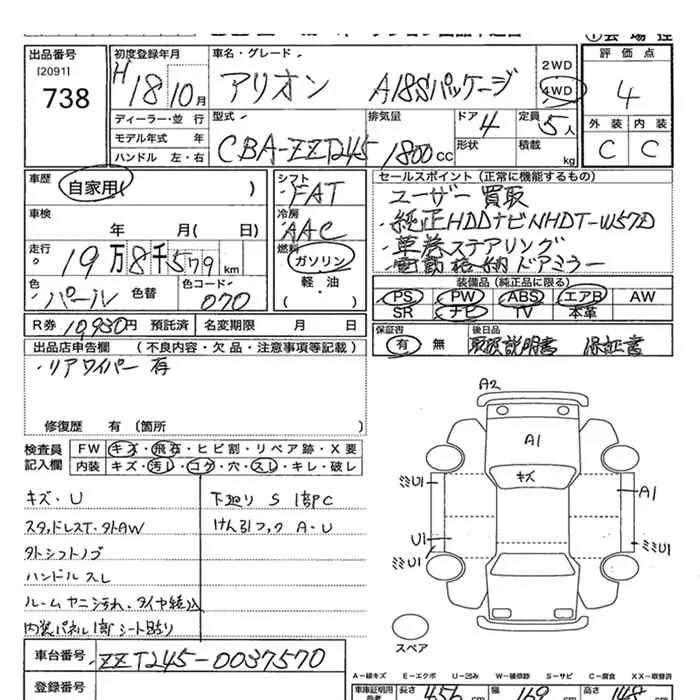 出品番号
[2091]
738
初度登録年月
H18 10月
車名・グレード
アリオン A18Sパッケージ
2WD
4WD
評価点
4
外装 内装
C C
ディーラー・並行
モデル年式 年
ハンドル 左・右
型式
CBA-ZZT245
排気量
1800cc
ドア
4
形状
定員
5人
積載
kg
車歴
自家用( )
車検
年 月( 日)
走行
19万8千579km
色
パール
色替
色コード
070
シフト
FAT
冷房
AAC
燃料
ガソリン
軽・油
( )
R券 10,930円 預託済 名変期限 月 日
セールスポイント (正常に機能するもの)
・ユーザー買取
・純正HDDナビNHDT-W57D
・革巻ステアリング
・電動格納ドアミラー
装備品 (純正品に限る)
PS PW ABS エアB AW
SR ナビ TV 本革
保証書
有 無
後日品
取扱説明書 保証書
出品店申告欄 (不良内容・欠品・注意事項等記載)
・リアワイパー有
修復歴 有 (箇所
検査員
記入欄
FW キズ・飛石・ヒビ割・リペア跡・X要
内装 キズ・汚れ・コゲ・穴・スレ・キレ・破レ
キズ・U
スタッドレスT・タトAW
タトシフトノブ
ハンドルスレ
ルームヤニ汚れ、タイヤ積込
内装パネル1部シート貼り
下廻り S 1部C
けん引フック A・U
A2
A1
キズ
U1
A1
U1
U1
U1
スペア
車台番号 ZZT245-0037570
登録番号
A-線キズ E-エクボ U-凹み W-補修跡 S-サビ C-腐食 XX-取替済
車庫証明用
参考
長さ 456 cm 幅 169 cm 高さ 148 cm